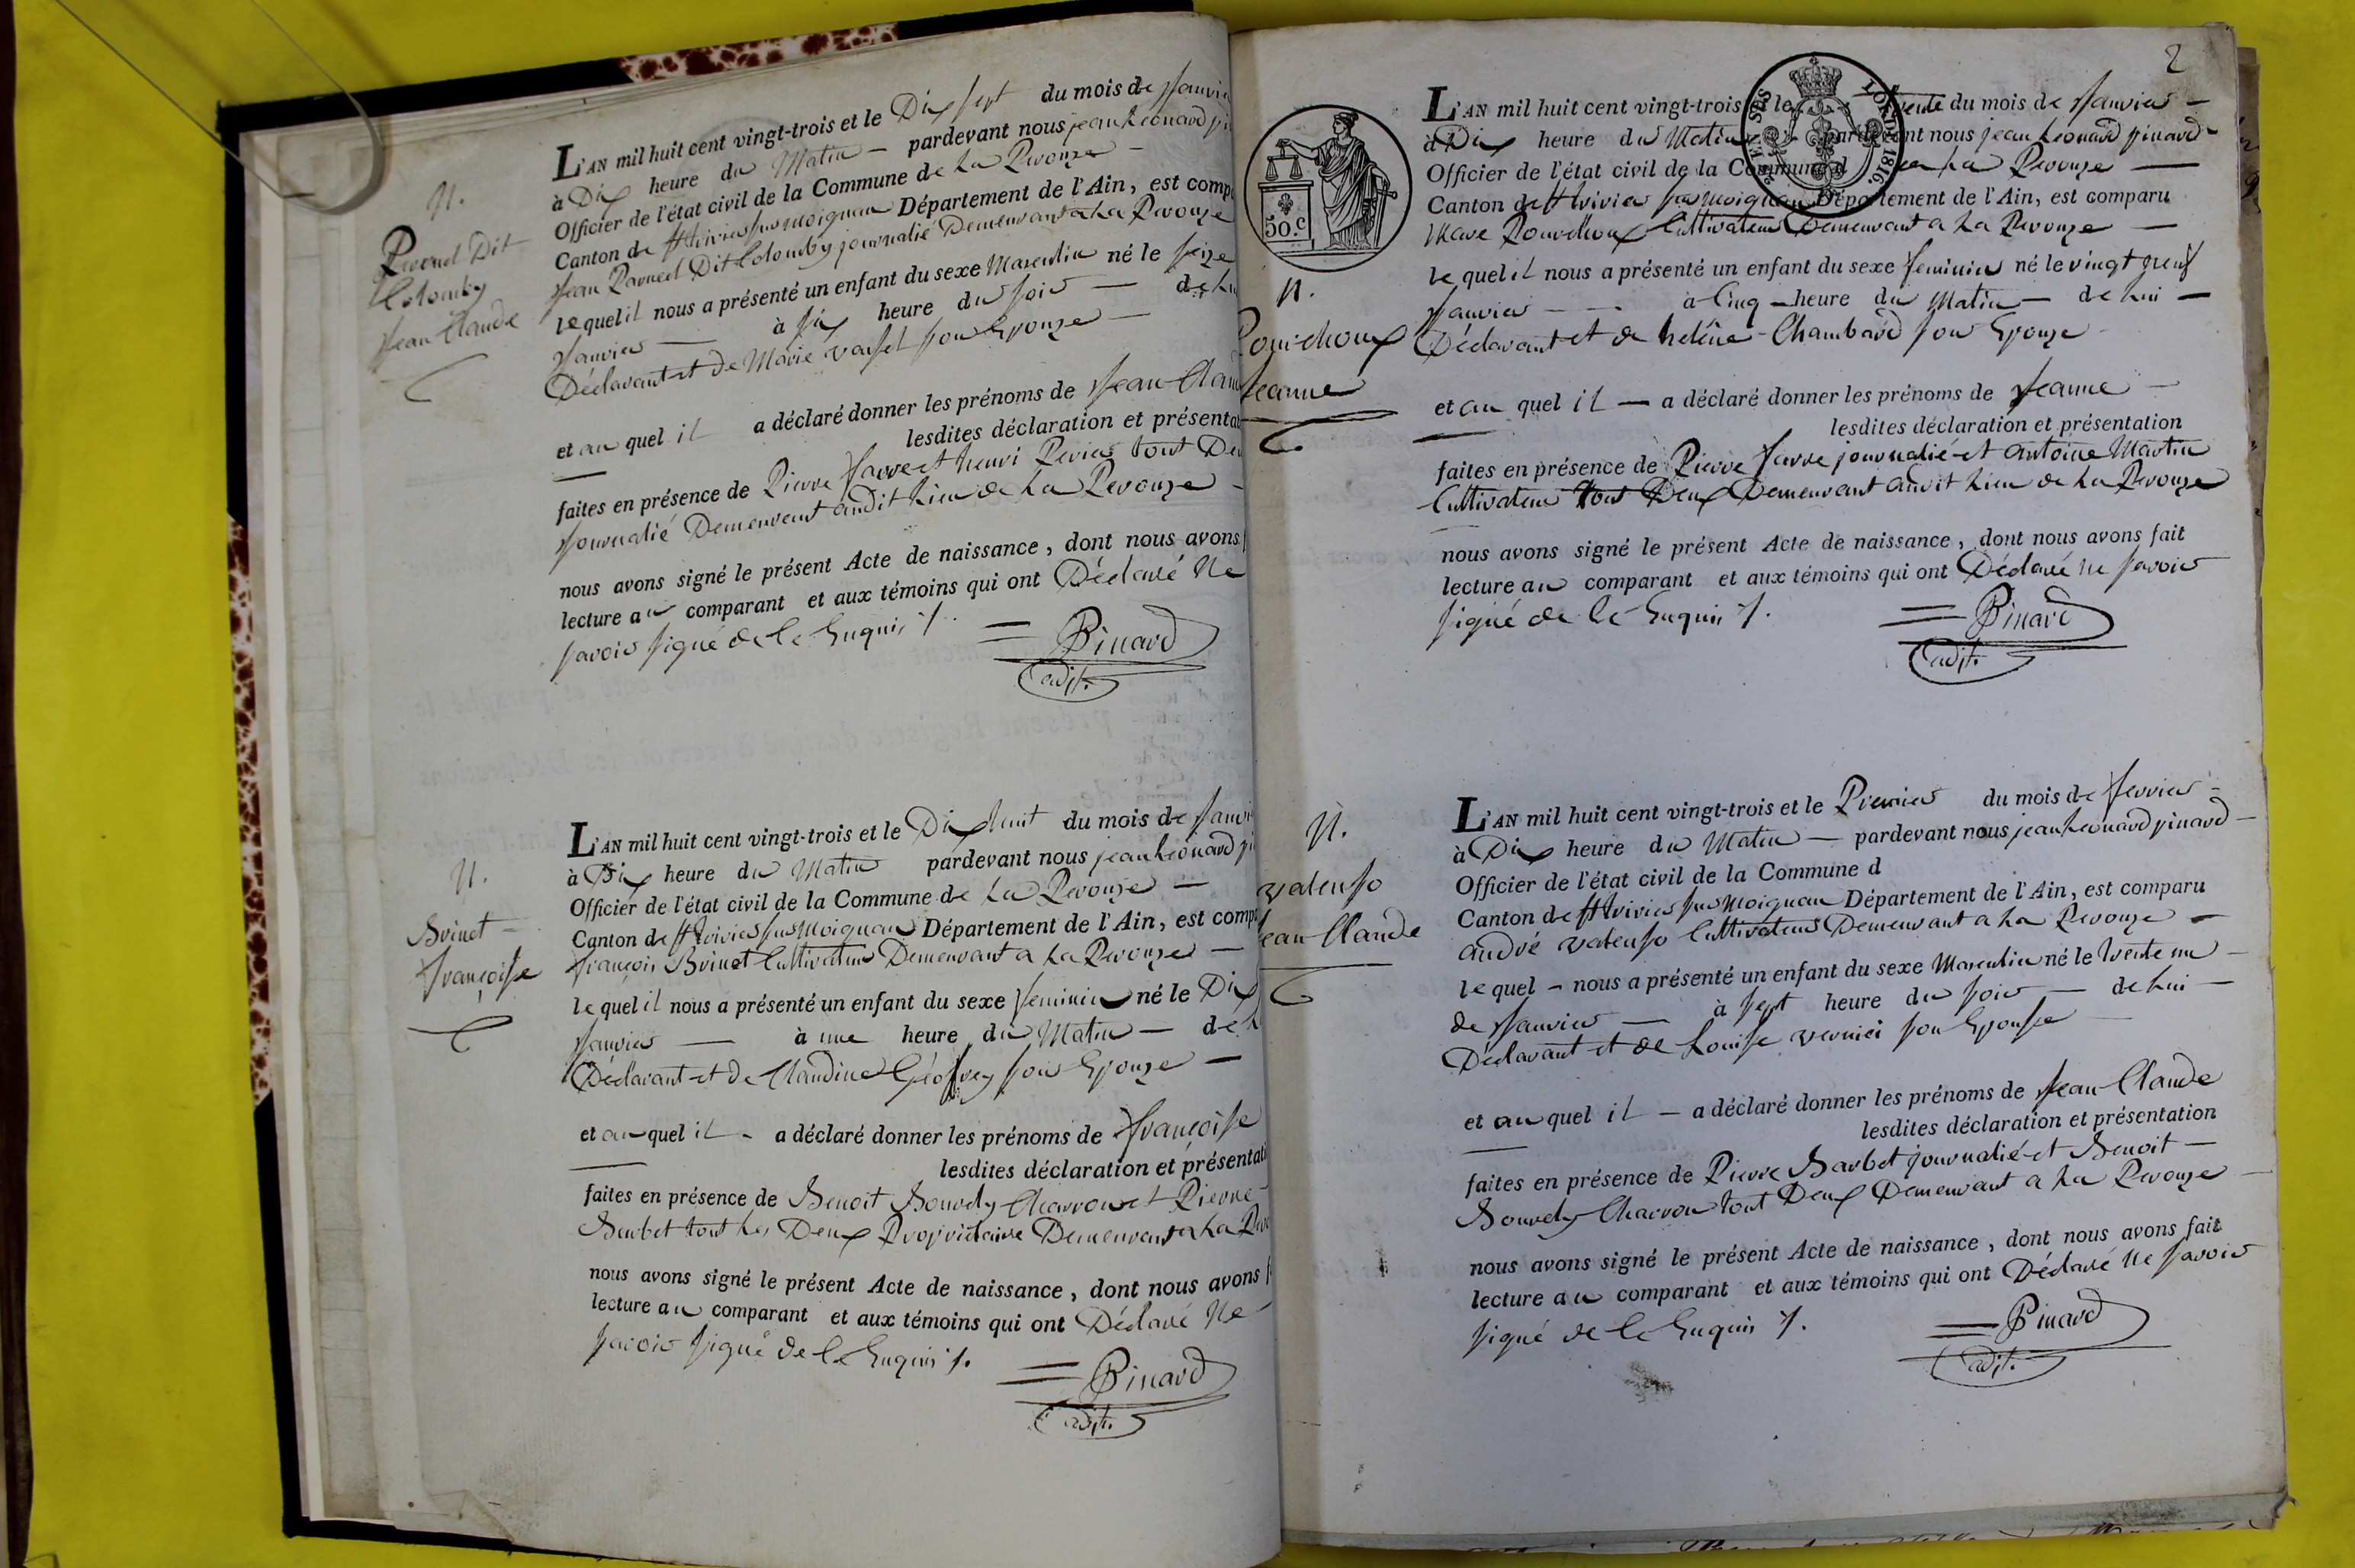 N.
Dit
Colomby
Jean Claude
L'AN mil huit cent vingt-trois et le Dix sept du mois de Janvier
à Dix heure du Matin — pardevant nous jean Leonard
Officier de l'état civil de la Commune de La Perouze —
Canton de St trivier sur moignan Département de l'Ain, est comp
Jean Dit Colomby journalié Demeurant a La Perouze
le quel il nous a présenté un enfant du sexe Masculin né le Seize
Janvier — à Six heure du soir — de Lui
Déclarant et de Marie son Epouze —
et au quel il a déclaré donner les prénoms de Jean Clau
lesdites déclaration et présentat
faites en présence de Pierre Favre et henri Perier tout Deu
Journalié Demeurant audit Lieu de La Perouze —
nous avons signé le présent Acte de naissance, dont nous avons f
lecture au comparant et aux témoins qui ont Déclaré Ne
savoir signé de Ce Enquis /.
Pinard
adjt.
N.
Brinet —
françoise
L'AN mil huit cent vingt-trois et le Dix huit du mois de Janvi
à Dix heure du Matin pardevant nous jean Leonard pi
Officier de l'état civil de la Commune de La Perouze —
Canton de St trivier sur Moignan Département de l'Ain, est comp
françois Brinet Cultivateur Demeurant a La Perouze —
le quel il nous a présenté un enfant du sexe feminin né le Dix
Janvier — à une heure du Matin — de L
Déclarant et de Claudine Géofrey son Epouze —
et au quel il - a déclaré donner les prénoms de françoise
lesdites déclaration et présentati
faites en présence de Benoit Bourdy Charron et Pierre
Barbet tout Les Deux Propriétaire Demeurant a La Per
nous avons signé le présent Acte de naissance, dont nous avons f
lecture au comparant et aux témoins qui ont Déclaré Ne
savoir signé de Ce Enquis /.
Pinard
adjt.
2
50.c
LOI DE 1816.
N.
Jeanne
L'AN mil huit cent vingt-trois et le trente du mois de Janvier —
à Dix heure du Matin pardevant nous jean Leonard pinard -
Officier de l'état civil de la Commune d La Perouze —
Canton de St trivier sur moignan Département de l'Ain, est comparu
Marc Cultivateur Demeurant a La Perouze —
le quel il nous a présenté un enfant du sexe feminin né le vingt neuf
Janvier — à Cinq — heure du Matin — de Lui —
Déclarant et de heléne Chambard son Epouze
et au quel il — a déclaré donner les prénoms de Jeanne —
lesdites déclaration et présentation
faites en présence de Pierre Favre journalié et antoine Martin
Cultivateur tout Deux Demeurant audit Lieu de La Perouze
nous avons signé le présent Acte de naissance, dont nous avons fait
lecture au comparant et aux témoins qui ont Déclaré Ne savoir
signé de Ce Enquis /.
Pinard
adjt.
N.
valenso
Jean Claude
L'AN mil huit cent vingt-trois et le Premier du mois de fevrier -
à Dix heure du Matin — pardevant nous jean Leonard pinard —
Officier de l'état civil de la Commune d
Canton de St trivier sur Moignan Département de l'Ain, est comparu
andré valenso Cultivateur Demeurant a La Perouze —
le quel - nous a présenté un enfant du sexe Masculin né le trente un —
de Janvier — à sept heure du soir — de Lui —
Déclarant et de Louise son Epouse —
et au quel il — a déclaré donner les prénoms de Jean Claude
lesdites déclaration et présentation
faites en présence de Pierre Barbet journalié et Benoit —
Bourdy Charron tout Deux Demeurant a La Perouze —
nous avons signé le présent Acte de naissance, dont nous avons fait
lecture au comparant et aux témoins qui ont Déclaré Ne savoir
signé de Ce Enquis /.
Pinard
adjt.